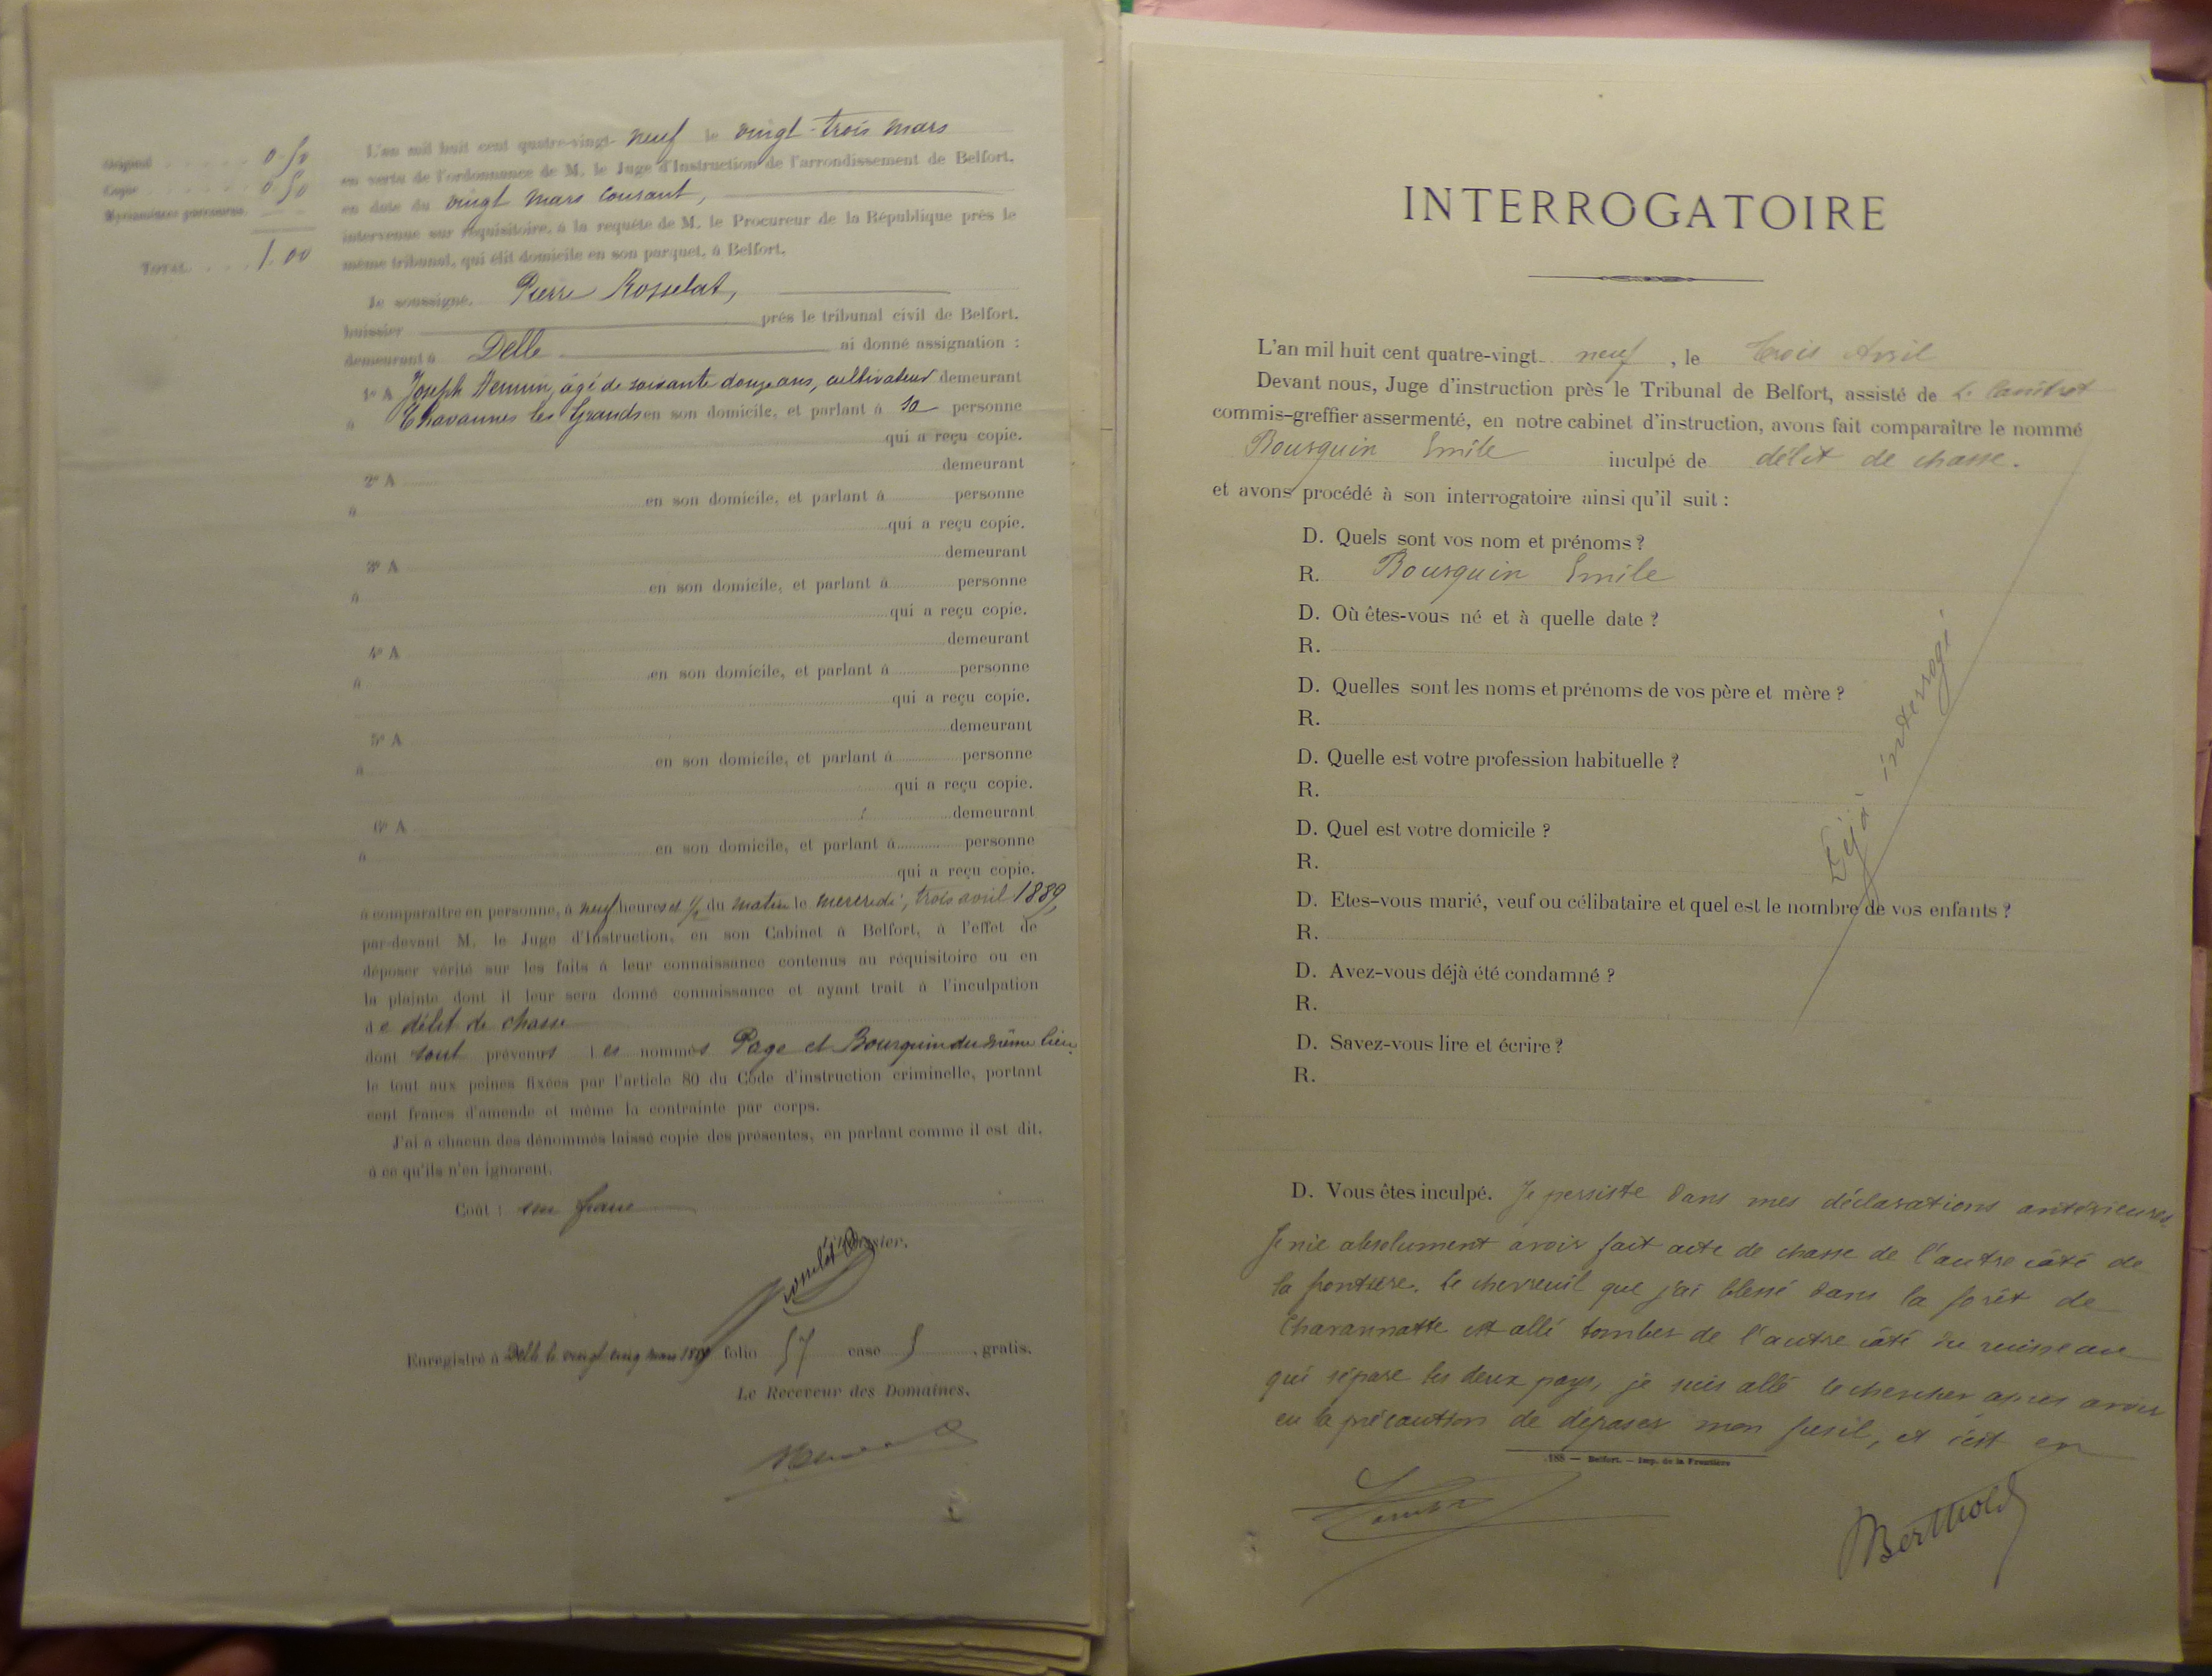 Original 0.50
Copie 0.50
Myriamètres parcourus
TOTAL 1.00
L'an mil huit cent quatre-vingt-neuf le vingt-trois mars
en vertu de l'ordonnance de M. le Juge d'Instruction de l'arrondissement de Belfort,
en date du vingt mars courant,
intervenue sur réquisitoire, à la requête de M. le Procureur de la République près le
même tribunal, qui élit domicile en son parquet, à Belfort.
Je soussigné, Pierre Rosselat,
huissier près le tribunal civil de Belfort.
demeurant à Delle ai donné assignation :
1º A Joseph âgé de soixante douze ans, cultivateur demeurant
à Chavannes les Grands en son domicile, et parlant à sa personne
qui a reçu copie.
2º A demeurant
à en son domicile, et parlant à personne
qui a reçu copie.
3º A demeurant
à en son domicile, et parlant à personne
qui a reçu copie.
4º A demeurant
à en son domicile, et parlant à personne
qui a reçu copie.
5º A demeurant
à en son domicile, et parlant à personne
qui a reçu copie.
6º A demeurant
à en son domicile, et parlant à personne
qui a reçu copie.
à comparaître en personne, à neuf heures et 1/2 du matin le mercredi, trois avril 1889,
par-devant M. le Juge d'Instruction, en son Cabinet à Belfort, à l'effet de
déposer vérité sur les faits à leur connaissance contenus au réquisitoire ou en
la plainte dont il leur sera donné connaissance et ayant trait à l'inculpation
de délit de chasse
dont sont prévenus les nommés Page et Bourquin du même lieu,
le tout aux peines fixées par l'article 80 du Code d'instruction criminelle, portant
cent francs d'amende et même la contrainte par corps.
J'ai à chacun des dénommés laissé copie des présentes, en parlant comme il est dit,
à ce qu'ils n'en ignorent.
Coût : un franc
L'Huissier,
Enregistré à Delle le vingt cinq mars 1889 folio 57 case 5, gratis.
Le Receveur des Domaines,
INTERROGATOIRE
L'an mil huit cent quatre-vingt neuf, le trois Avril
Devant nous, Juge d'instruction près le Tribunal de Belfort, assisté de
commis-greffier assermenté, en notre cabinet d'instruction, avons fait comparaître le nommé
Bourquin Emile inculpé de délit de chasse.
et avons procédé à son interrogatoire ainsi qu'il suit :
D. Quels sont vos nom et prénoms ?
R. Bourquin Emile
D. Où êtes-vous né et à quelle date ?
R.
D. Quelles sont les noms et prénoms de vos père et mère ?
R.
D. Quelle est votre profession habituelle ?
R.
D. Quel est votre domicile ?
R.
D. Etes-vous marié, veuf ou célibataire et quel est le nombre de vos enfants ?
R.
D. Avez-vous déjà été condamné ?
R.
D. Savez-vous lire et écrire ?
R.
Déjà interrogé
D. Vous êtes inculpé. Je persiste dans mes déclarations antérieures.
Je nie absolument avoir fait acte de chasse de l'autre côté de
la frontière. Le chevreuil que j'ai blessé dans la forêt de
Chavannatte est allé tomber de l'autre côté du ruisseau
qui sépare les deux pays, je suis allé le chercher après avoir
eu la précaution de déposer mon fusil, et c'est en
188 — Belfort. — Imp. de la Frontière
Berthold